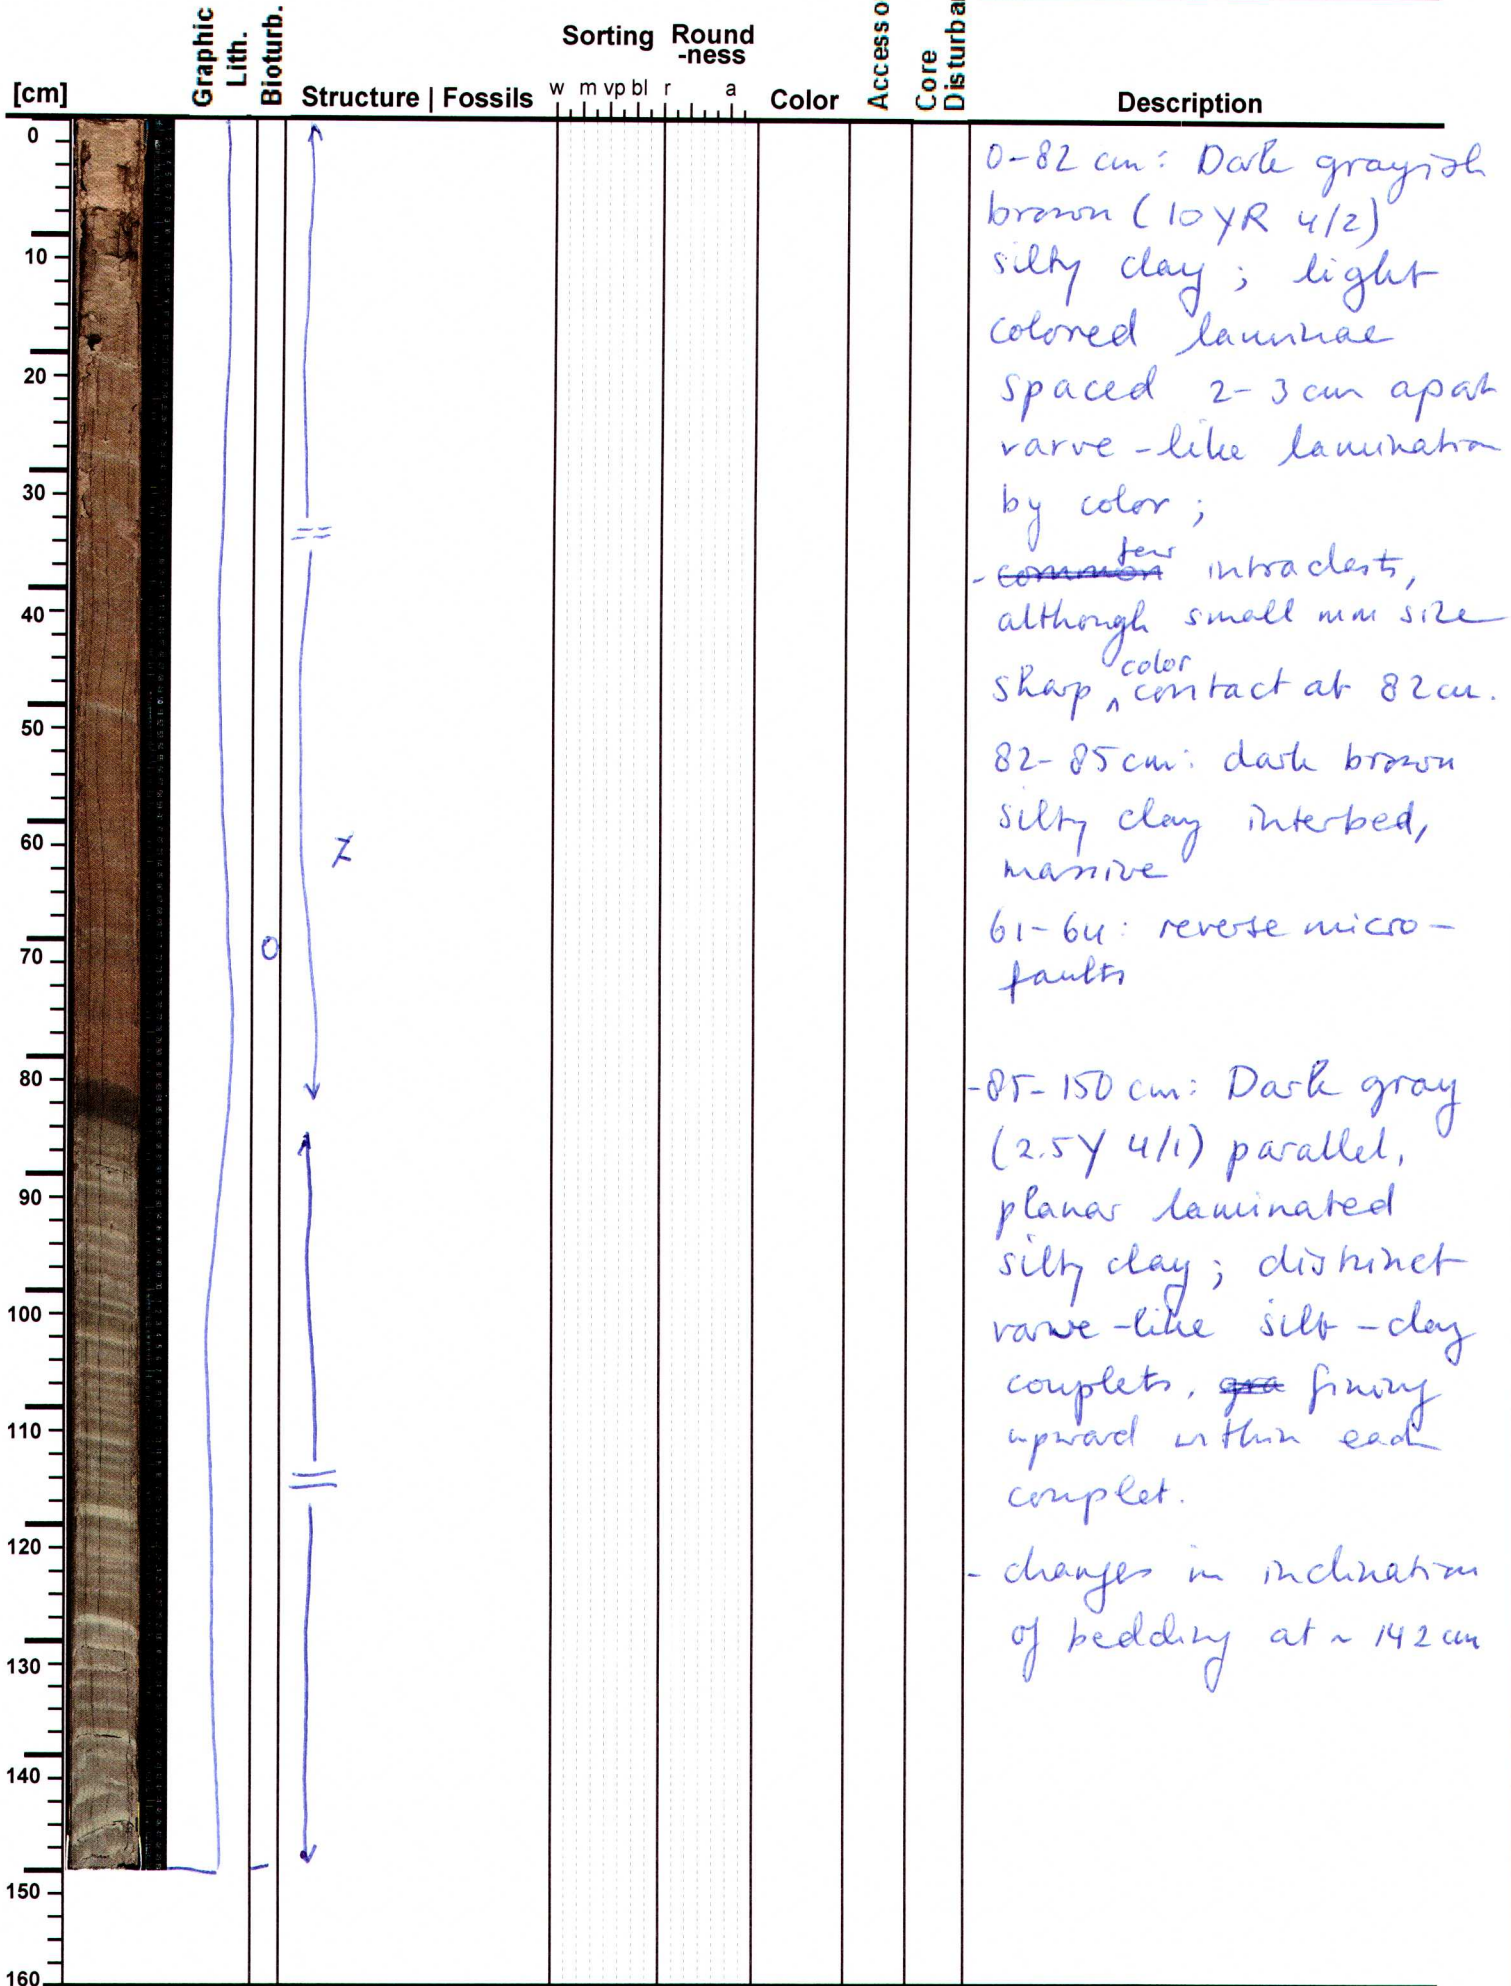 Graphic
Lith.
Bioturb.
Sorting Round
-ness
Accesso
Core
Disturba
[cm]
Structure | Fossils
w m vp bl r a
Color
Description
0
10
20
30
40
50
60
70
80
90
100
110
120
130
140
150
160
0
0-82 cm: Dark grayish
brown (10YR 4/2)
silty clay; light
colored laminae
spaced 2-3 cm apart
varve-like lamination
by color;
few
- common intraclasts,
although small mm size
color
sharp ^ contact at 82cm.
82-85cm: dark brown
silty clay interbed,
massive
61-64: reverse micro-
faults
-85-150 cm: Dark gray
(2.5Y 4/1) parallel,
planar laminated
silty clay; distinct
varve-like silt-clay
couplets, gra fining
upward within each
couplet.
- changes in inclination
of bedding at ~ 142 cm